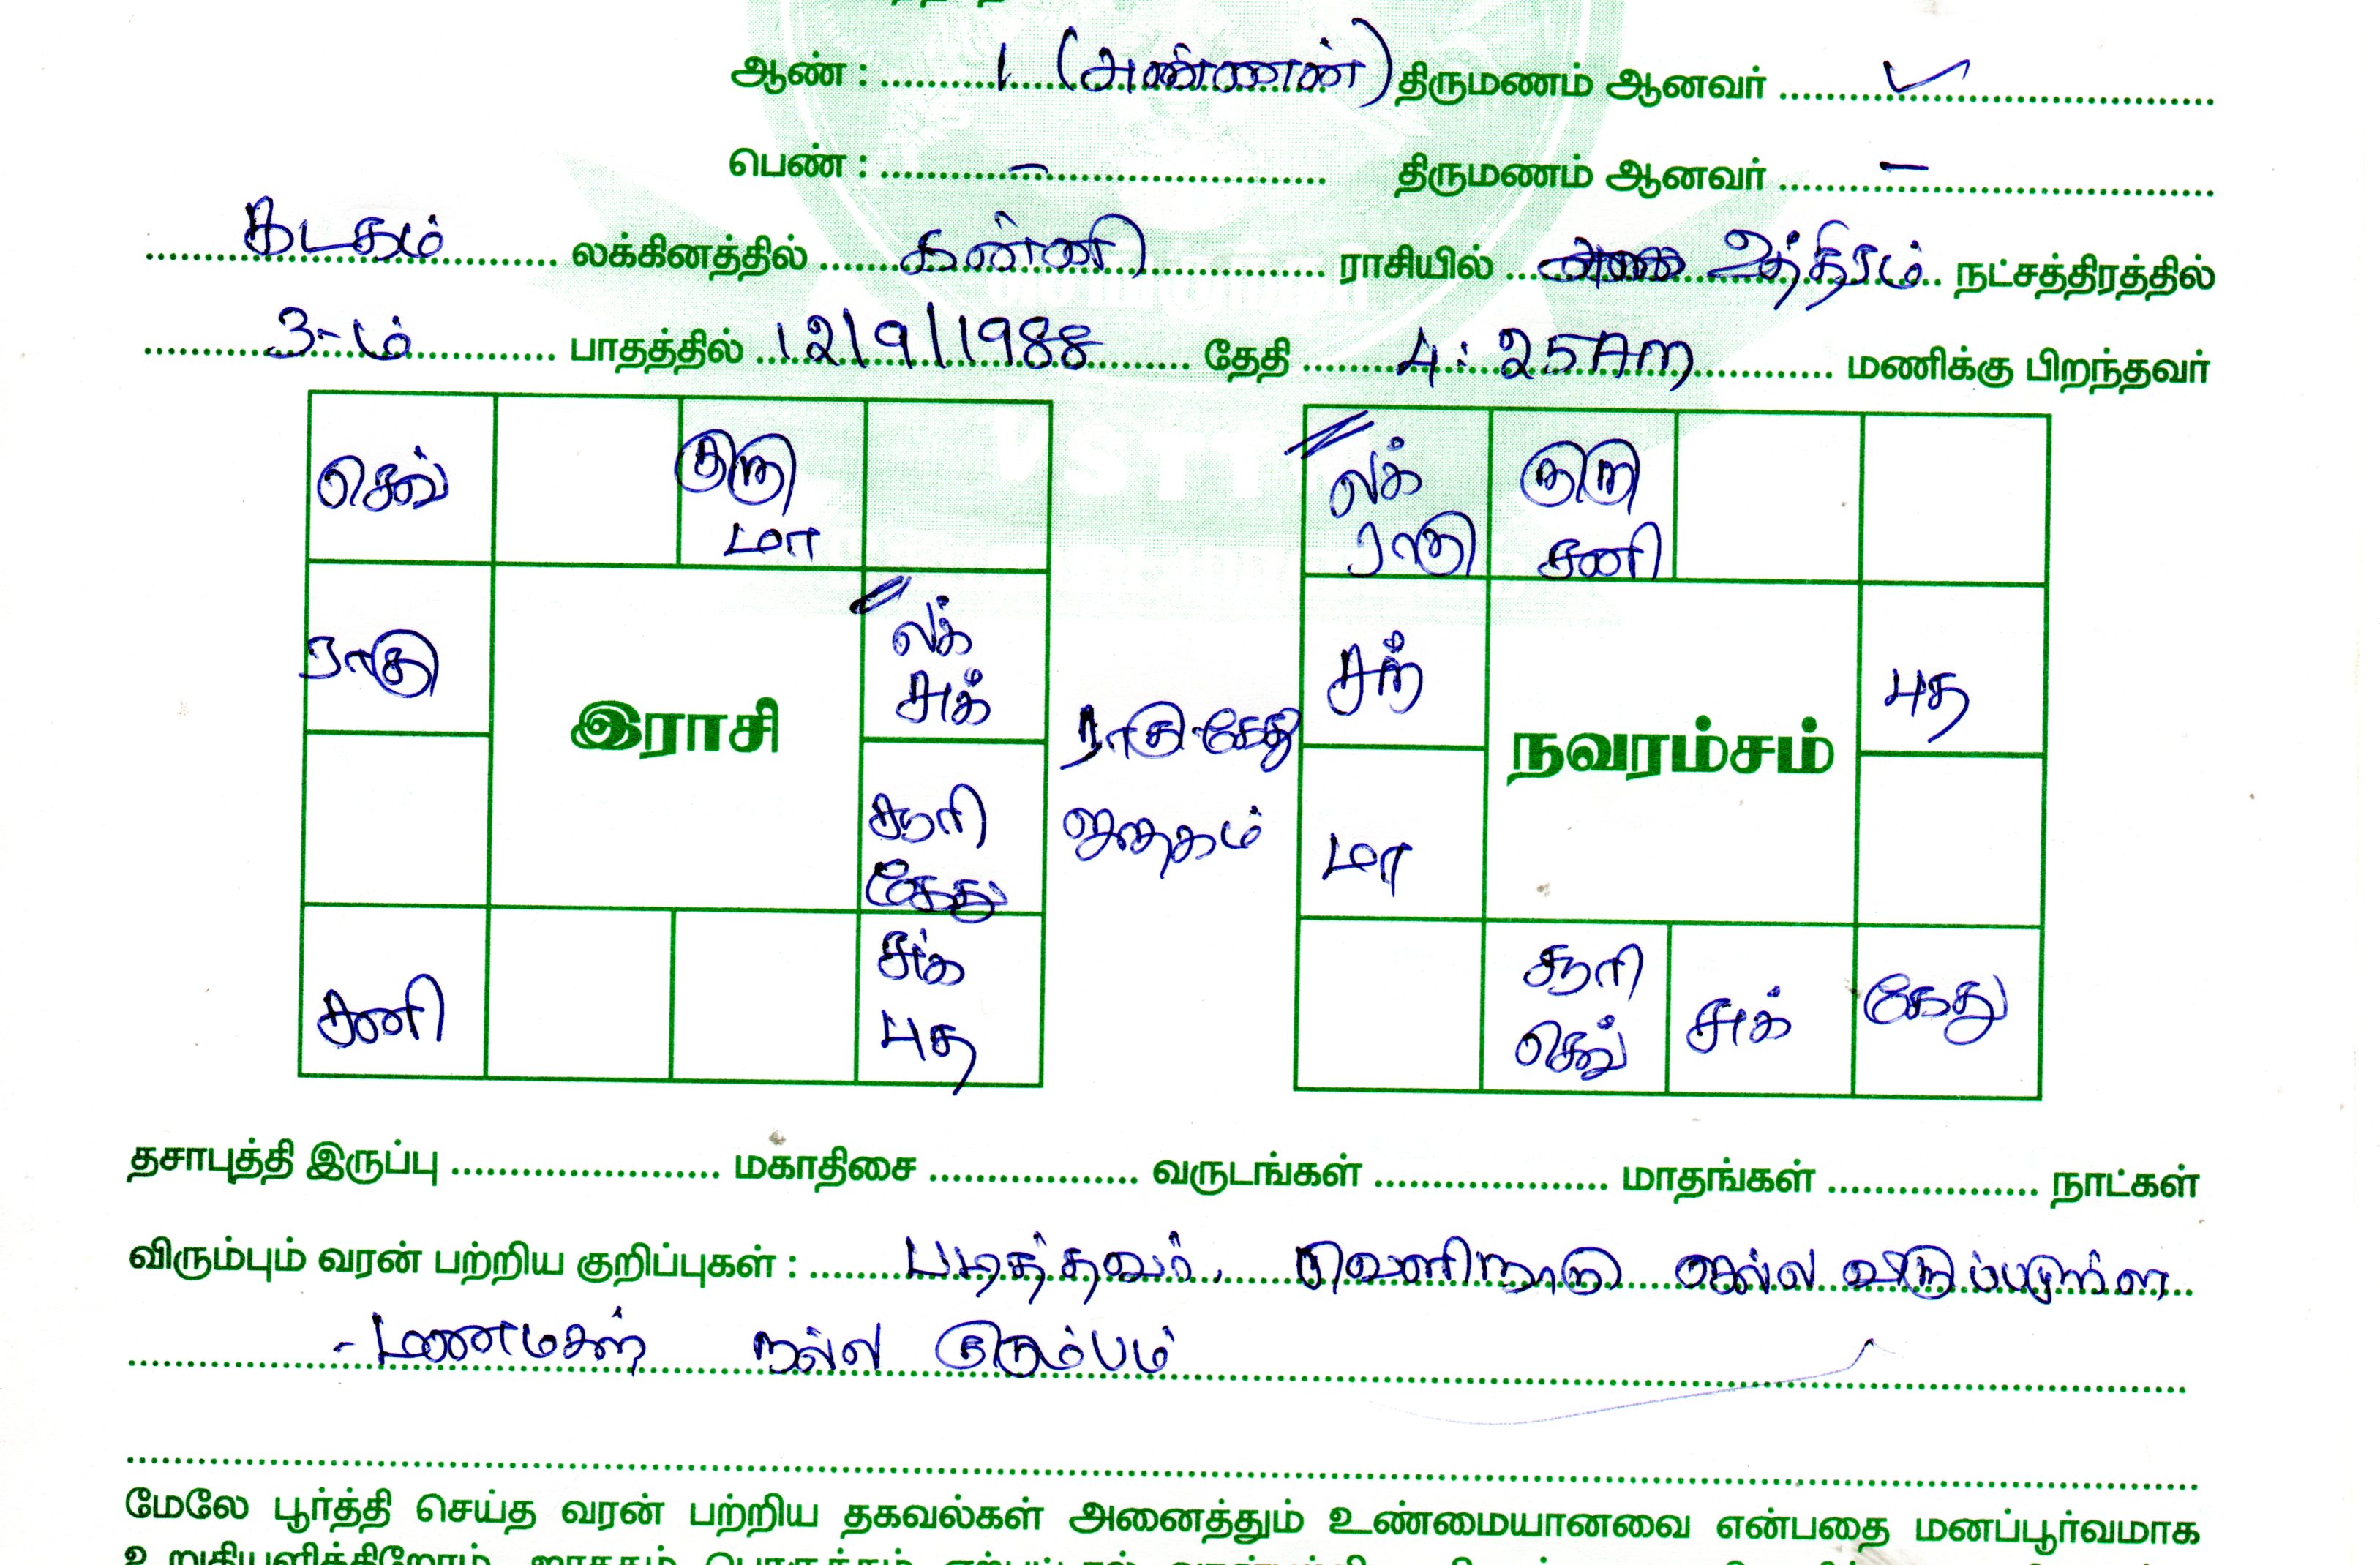 ஆண் : 1 (அண்ணன்) திருமணம் ஆனவர் ✓
பெண் : – திருமணம் ஆனவர் –
கடகம் லக்கினத்தில் கன்னி ராசியில் உத்திரம் நட்சத்திரத்தில்
3-ம் பாதத்தில் 12/9/1988 தேதி 4:25Am மணிக்கு பிறந்தவர்
செவ்
குரு
மா
ராகு
லக்
சுக்
சூரி
கேது
சனி
புத
இராசி
ராகு-கேது
ஜாதகம்
லக்
ராகு
குரு
சனி
புத
மா
சூரி
செவ்
சுக்
கேது
நவரம்சம்
தசாபுத்தி இருப்பு மகாதிசை வருடங்கள் மாதங்கள் நாட்கள்
விரும்பும் வரன் பற்றிய குறிப்புகள் : படித்தவர், வெளிநாடு செல்ல விருப்பமுள்ள
- மணமகன் நல்ல குடும்பம்
மேலே பூர்த்தி செய்த வரன் பற்றிய தகவல்கள் அனைத்தும் உண்மையானவை என்பதை மனப்பூர்வமாக